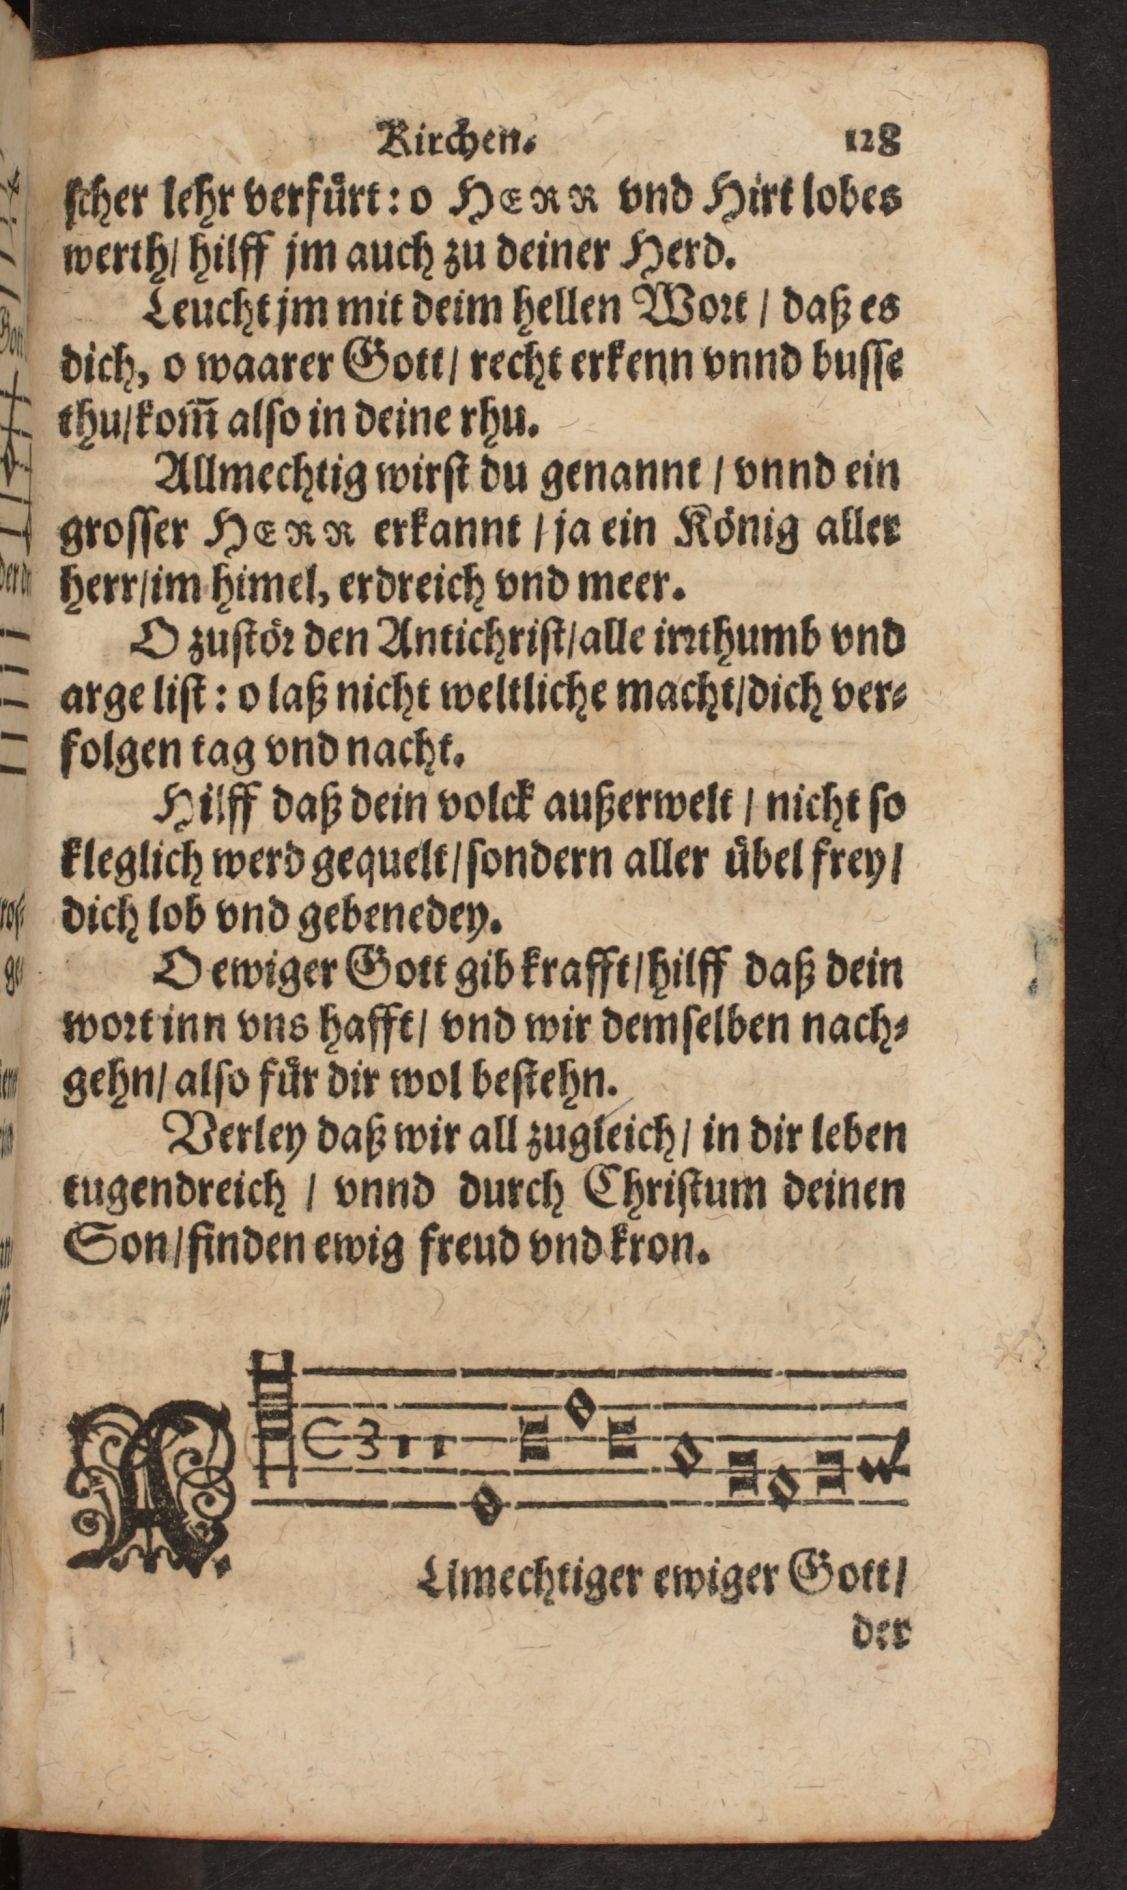 Kirchen. 128
scher lehr verfürt: o HERR vnd Hirt lobes
werth/ hilff jm auch zu deiner Herd.
Leucht jm mit deim hellen Wort / daß es
dich, o waarer Gott/ recht erkenn vnnd busse
thu/kom̃ also in deine rhu.
Allmechtig wirst du genannt / vnnd ein
grosser HERR erkannt / ja ein König aller
herr/im himel, erdreich vnd meer.
O zustör den Antichrist/alle irrthumb vnd
arge list: o laß nicht weltliche macht/dich ver⸗
folgen tag vnd nacht.
Hilff daß dein volck außerwelt / nicht so
kleglich werd gequelt/sondern aller übel frey/
dich lob vnd gebenedey.
O ewiger Gott gib krafft/hilff daß dein
wort inn vns hafft/ vnd wir demselben nach⸗
gehn/ also für dir wol bestehn.
Verley daß wir all zugleich/ in dir leben
tugendreich / vnnd durch Christum deinen
Son/finden ewig freud vnd kron.
A
Llmechtiger ewiger Gott/
der